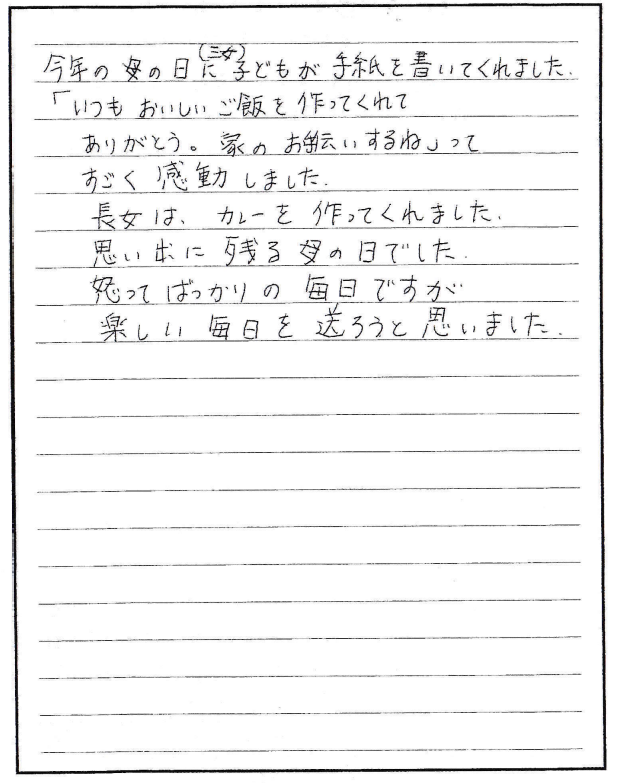 今年の母の日に(三女)子どもが手紙を書いてくれました.
「いつもおいしいご飯を作ってくれて
ありがとう。家のお手伝いするね」って
すごく感動しました.
長女は、カレーを作ってくれました.
思い出に残る母の日でした.
怒ってばっかりの毎日ですが
楽しい毎日を送ろうと思いました.